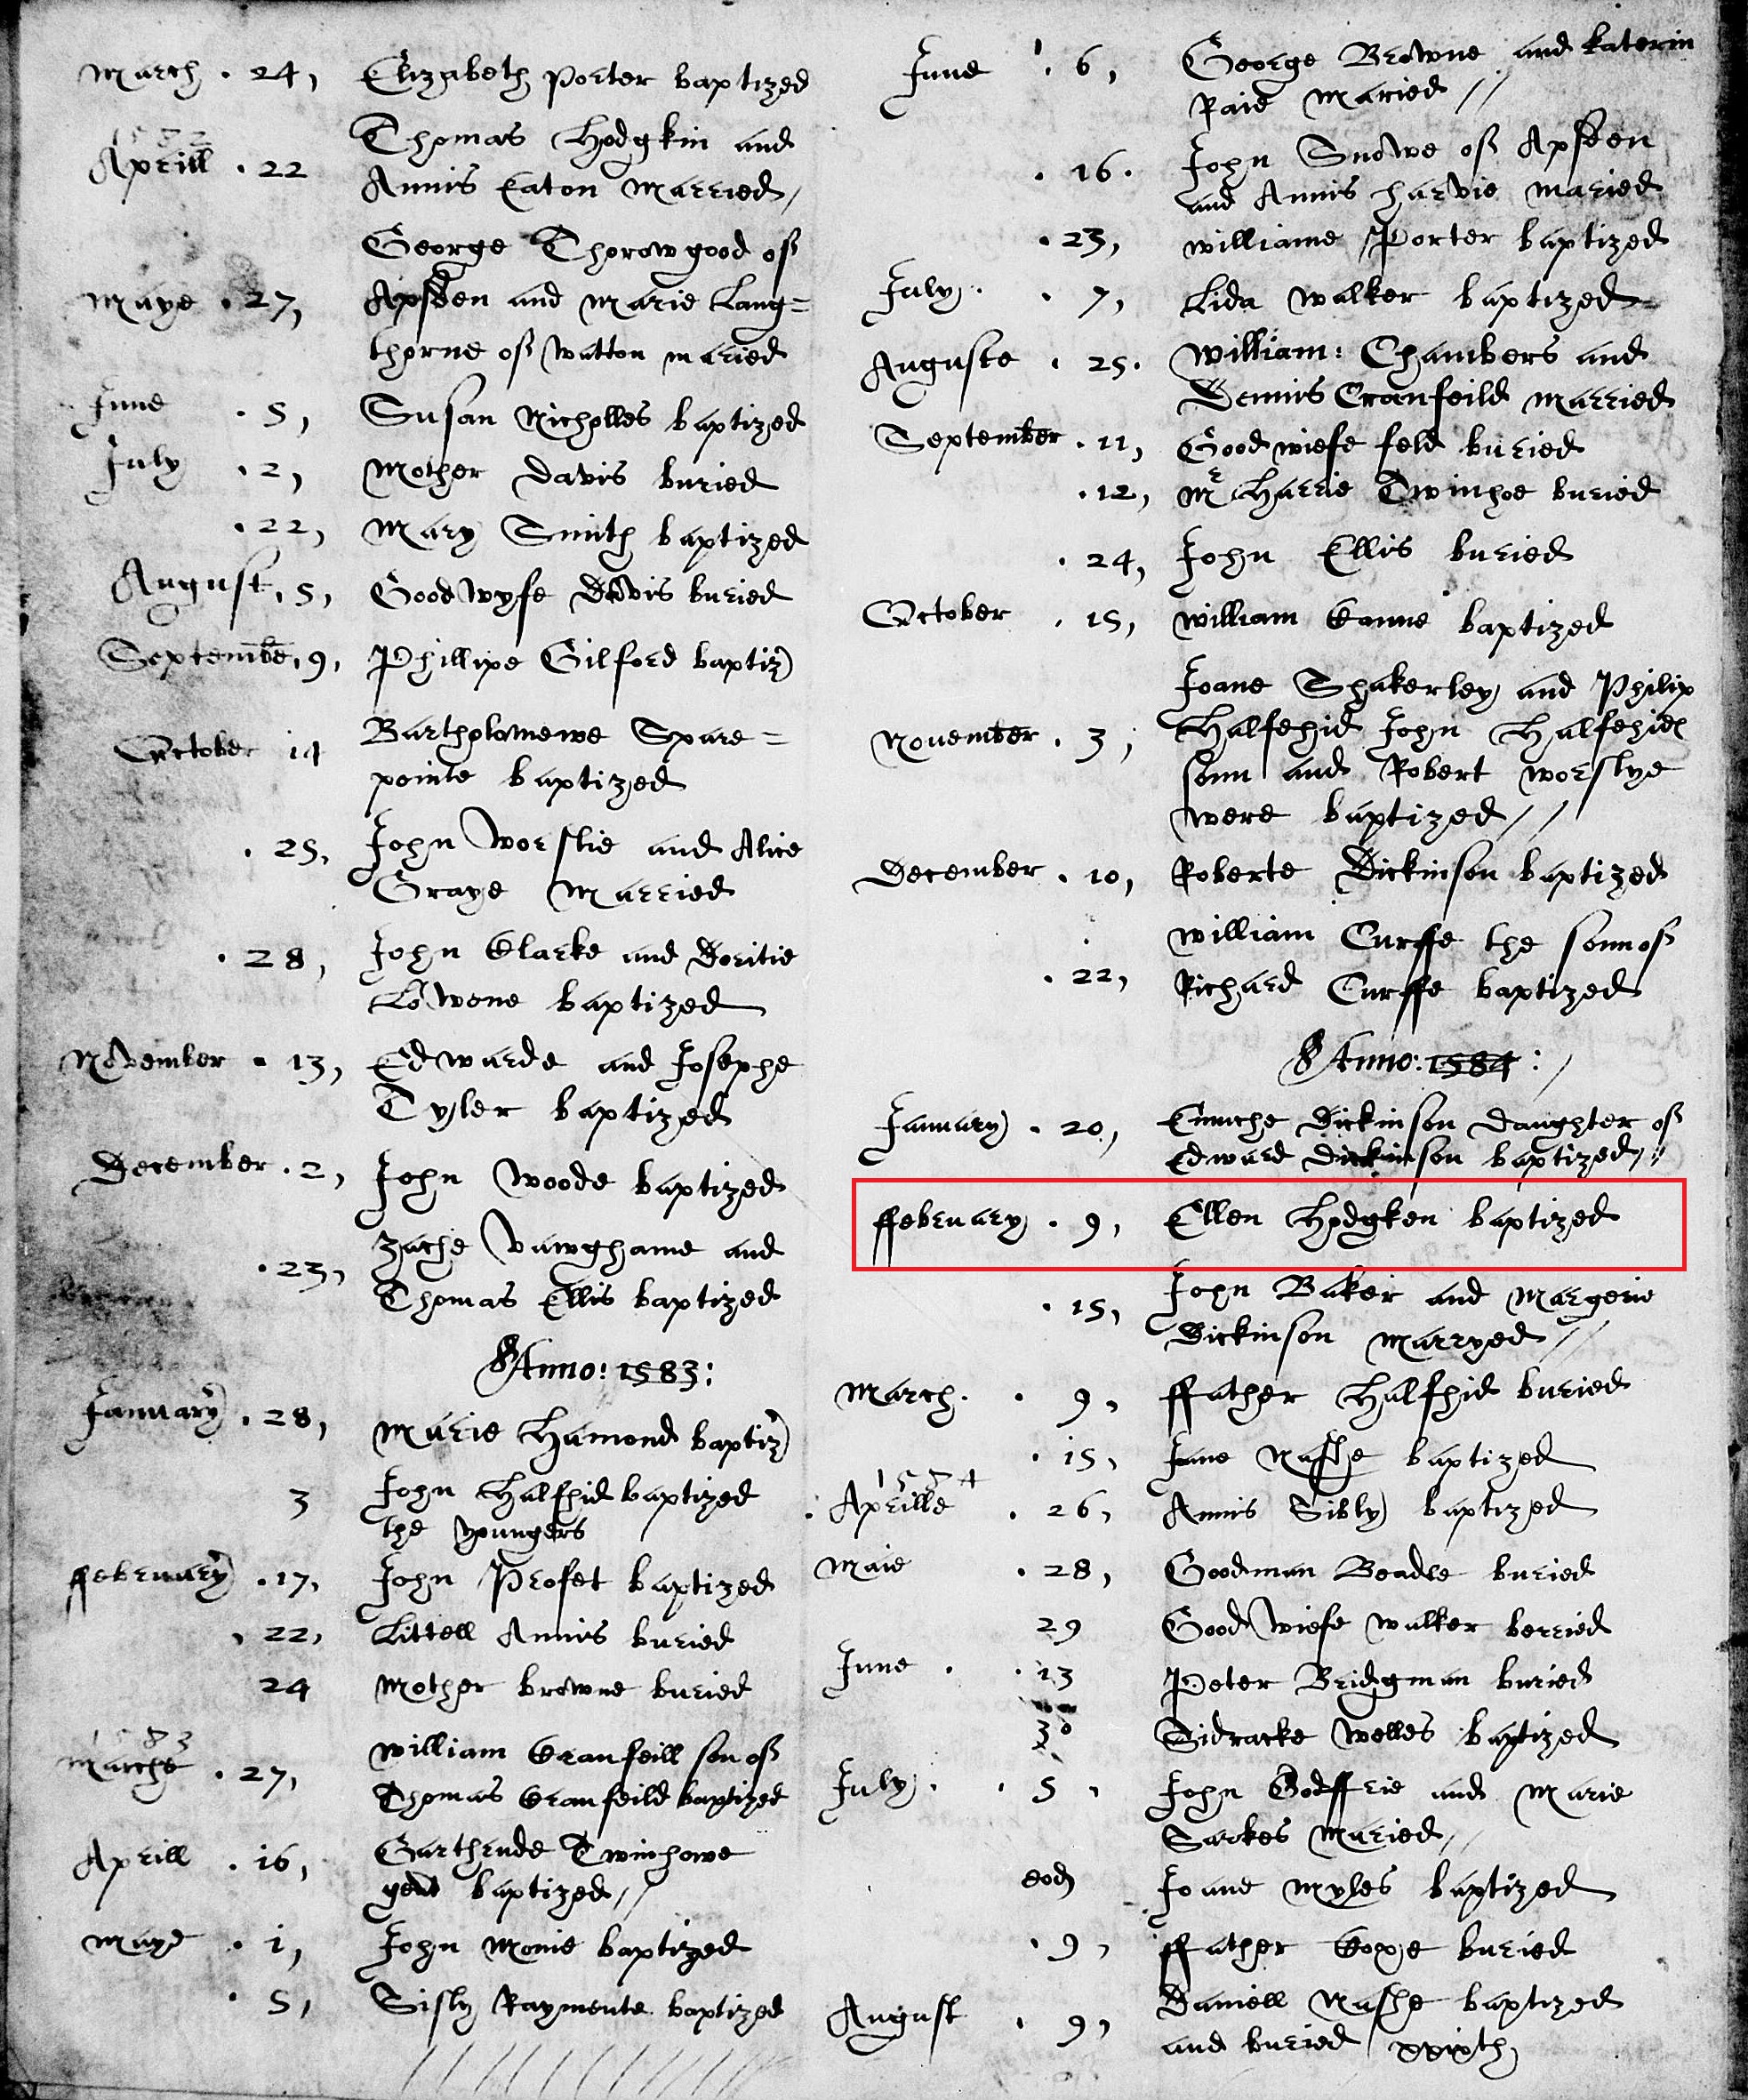 March . 24, Elizabeth Porter baptized
1582
Aprill . 22 Thomas Hodgkin and
Annis Eaton Married,
George Thorowgood of
Maye . 27, Apsden and Marie Lang=
thorne of Watton maried
June . 5, Susan Nicholles baptized
July . 2, Mother Davis buried
. 22, Mary Smith baptized
August, 5, Goodwyfe Davis buried
Septembe, 9, Phillipe Gilford baptiz
October 14 Bartholomewe Spare=
pointe baptized
. 25, John Worslie and Alice
Graye Married
. 28, John Clarke and Doritie
Lowene baptized
November . 13, Edwarde and Josephe
Tyler baptized
December . 2, John Woode baptized
. 23, Zache Vawghame and
Thomas Ellis baptized
Anno: 1583:
January . 28, Marie Hamond baptiz
3 John Halfhid baptized
the youngers
ffebruary . 17, John Profet baptized
, 22, Littell Annis buried
24 Mother browne buried
1583
Marche . 27, William Cranfeill son of
Thomas Cranfeild baptized
Aprill . 16, Garthrude Twinhowe
gent baptized, //
Maye . 1, John Monie baptized
. 5, Sisly Raymente baptized
June . 6, George Browne and katerin
Raie Maried //
. 16. John Snowe of Apsden
and Annis harvie maried
. 23, williame Porter baptized
July . . 7, Lida walker baptized
Auguste . 25. William: Chambers and
Dennis Cranfeild Married
September . 11, Goodwiefe feld buried
. 12, Mr Harrie Twinhoe buried
. 24, John Ellis buried
October . 15, william Canne baptized
Joane Shakerley and Philip
November . 3, Halfehid John Halfehid
sonn and Robert worslye
were baptized //
December . 10, Roberte Dickinson baptized
william Curffe the sonn of
. 22, Richard Curffe baptized
Anno: 1584:
January . 20, Dickinson daughter of
Edward Dickinson baptized,
ffebruary . 9, Ellen Hodgken baptized
. 15, John Baker and Margerie
Dickinson Marryed //
March . . 9, ffather Halfhid buried
. 15, Jane Nashe baptized
1584
Aprille . 26, Annis Sibly baptized
Maie . 28, Goodman Beadle buried
29 Goodwiefe walker berried
June . . 13 Peter Bridgman buried
30 Sidracke Welles baptized
July . . 5 , John Godffrie and Marie
Sarkes Maried, //
eod Joane Myles baptized
. 9, ffather Coxe buried
August . 9, Daniell Nashe baptized
and buried xxixth